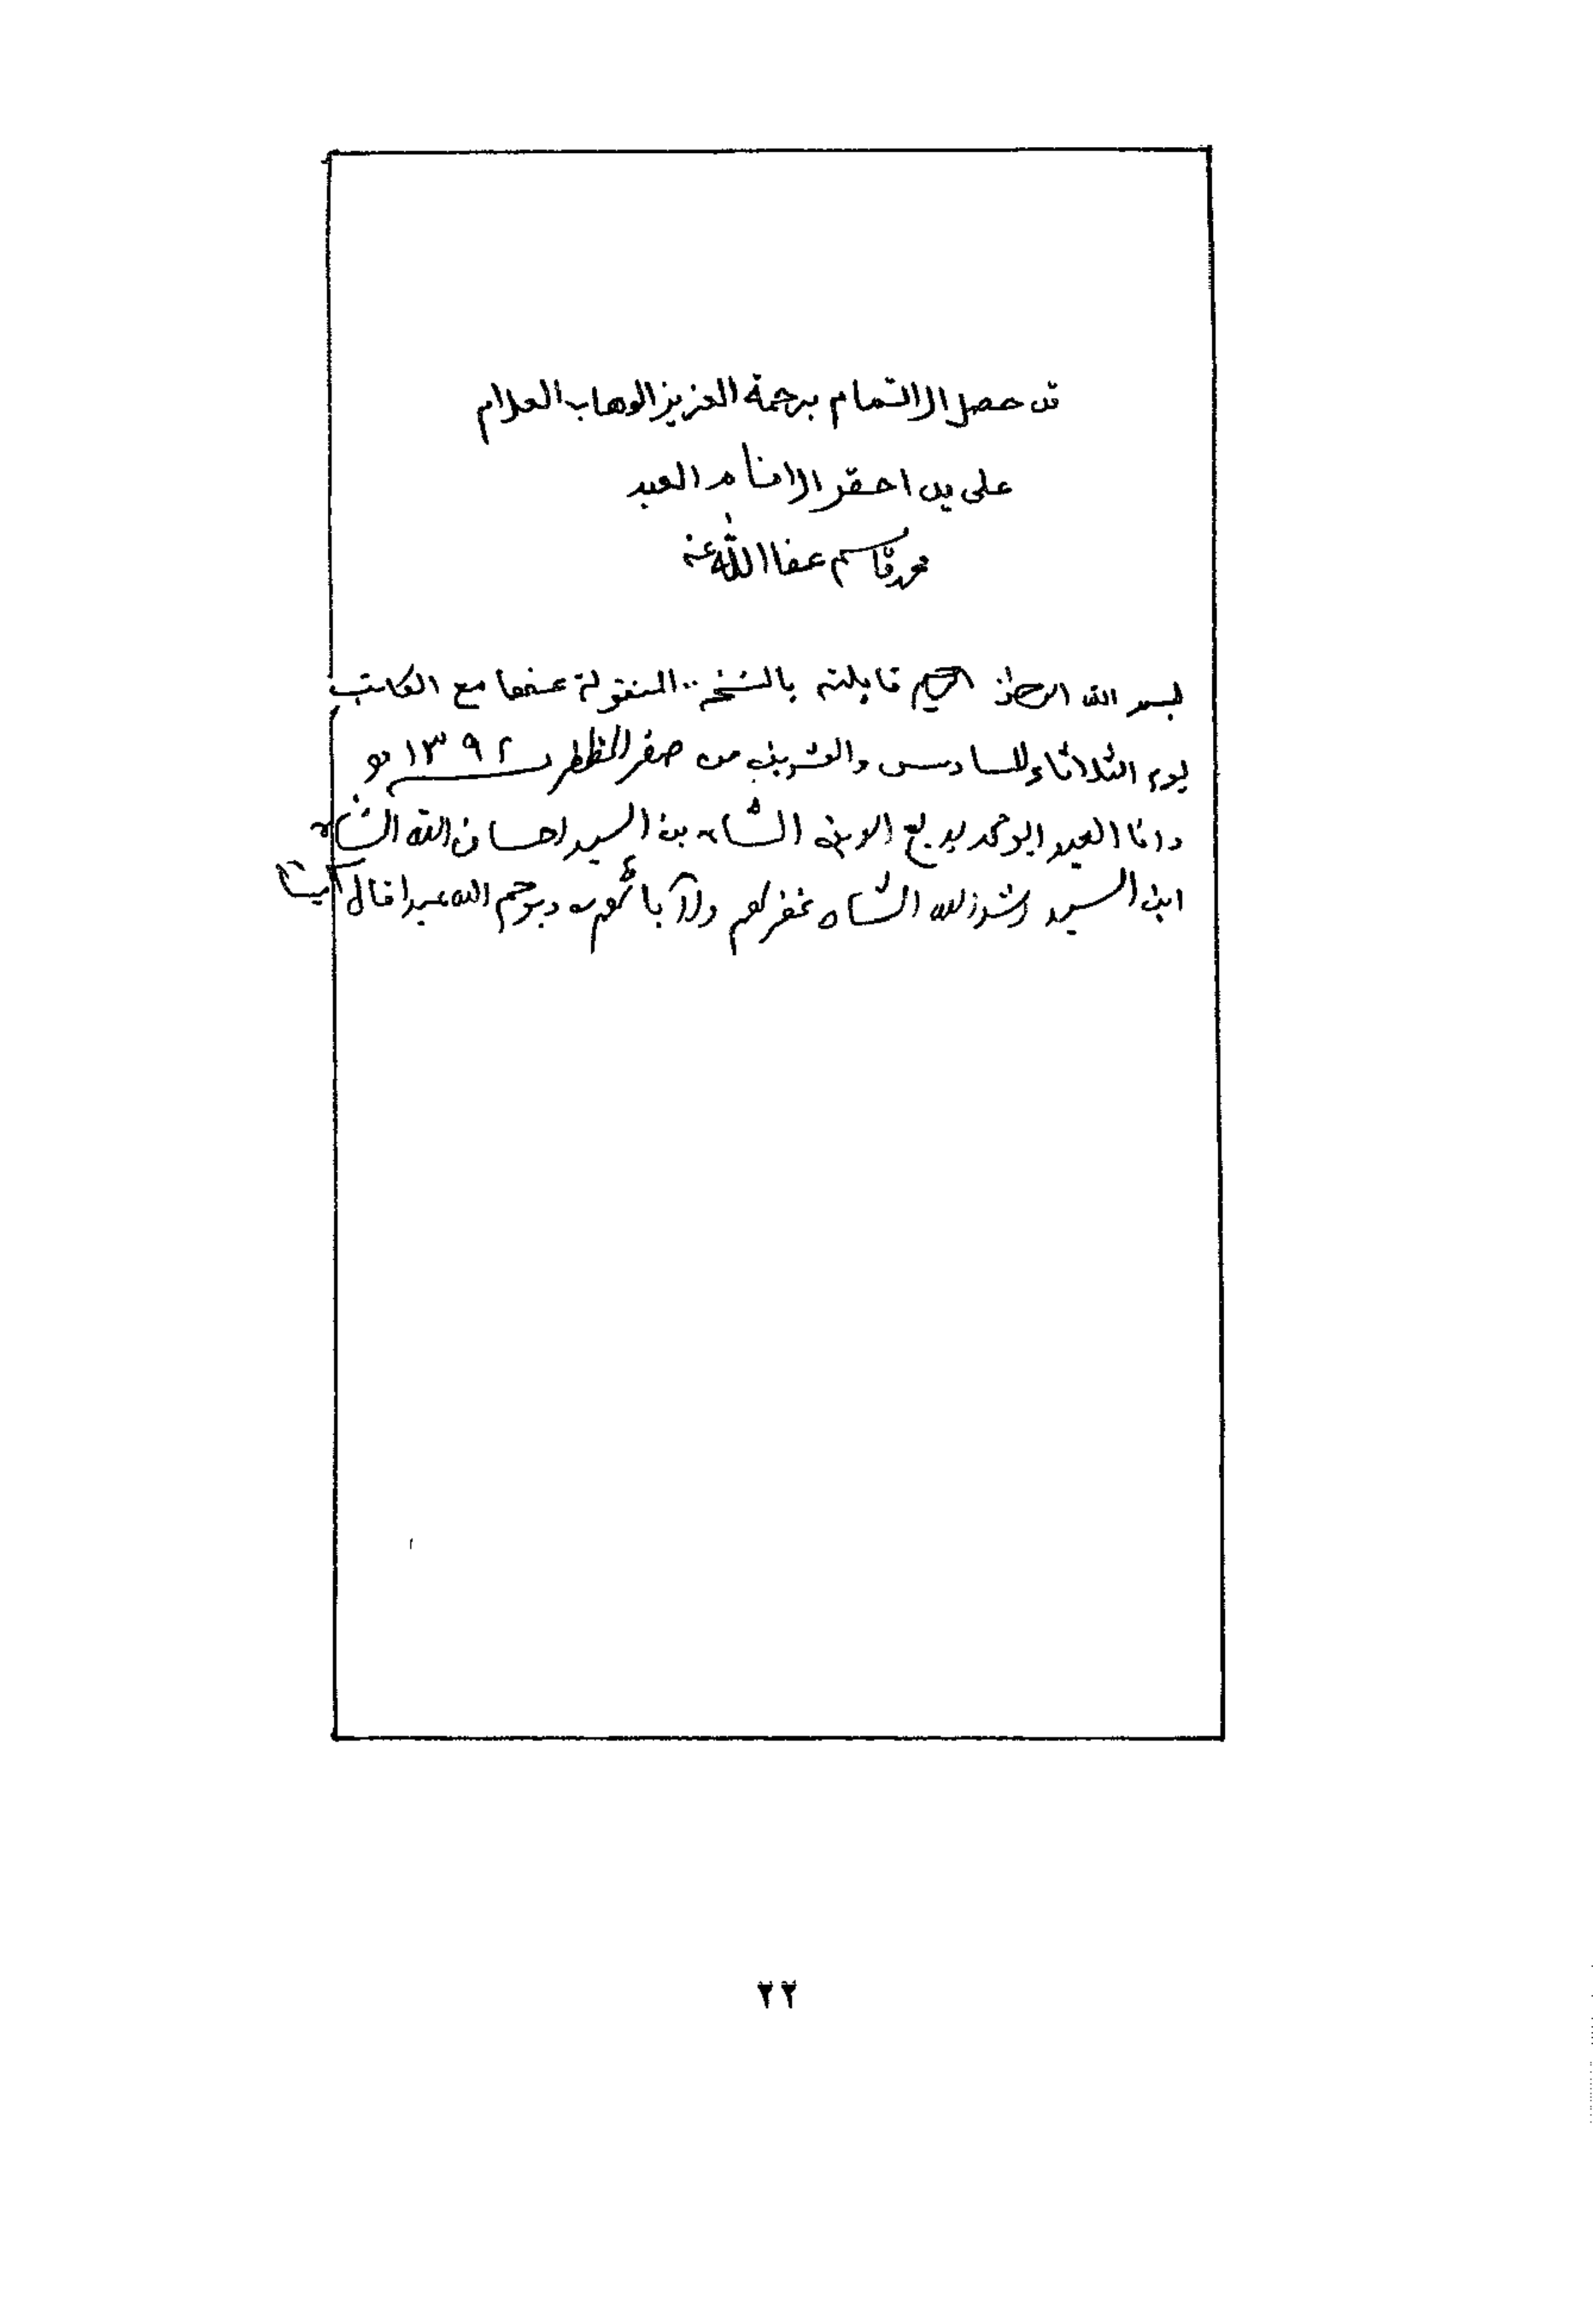 قد حصل الاتمام برحمة العزيز الوهاب العلام
على يد احقر الانام العبد
محمد قاسم عفا الله عنه
بسم الله الرحمن الرحيم قابلته بالنسخة المنقولة عنها مع الكاتب
يوم الثلاثاء للسادس والعشرين من صفر المظفر سنة ١٣٩٢ هـ
وانا العبد ابو محمد بديع الدين الشاه بن السيد احسان الله الشاه
ابن السيد رشد الله الشاه غفر لهم ولآبائهم ويرحم الله عبدا قال آمينا
٢٢